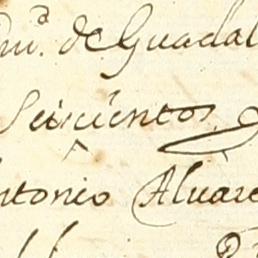 de Guadal
Seiscientos
ntonio Alvare